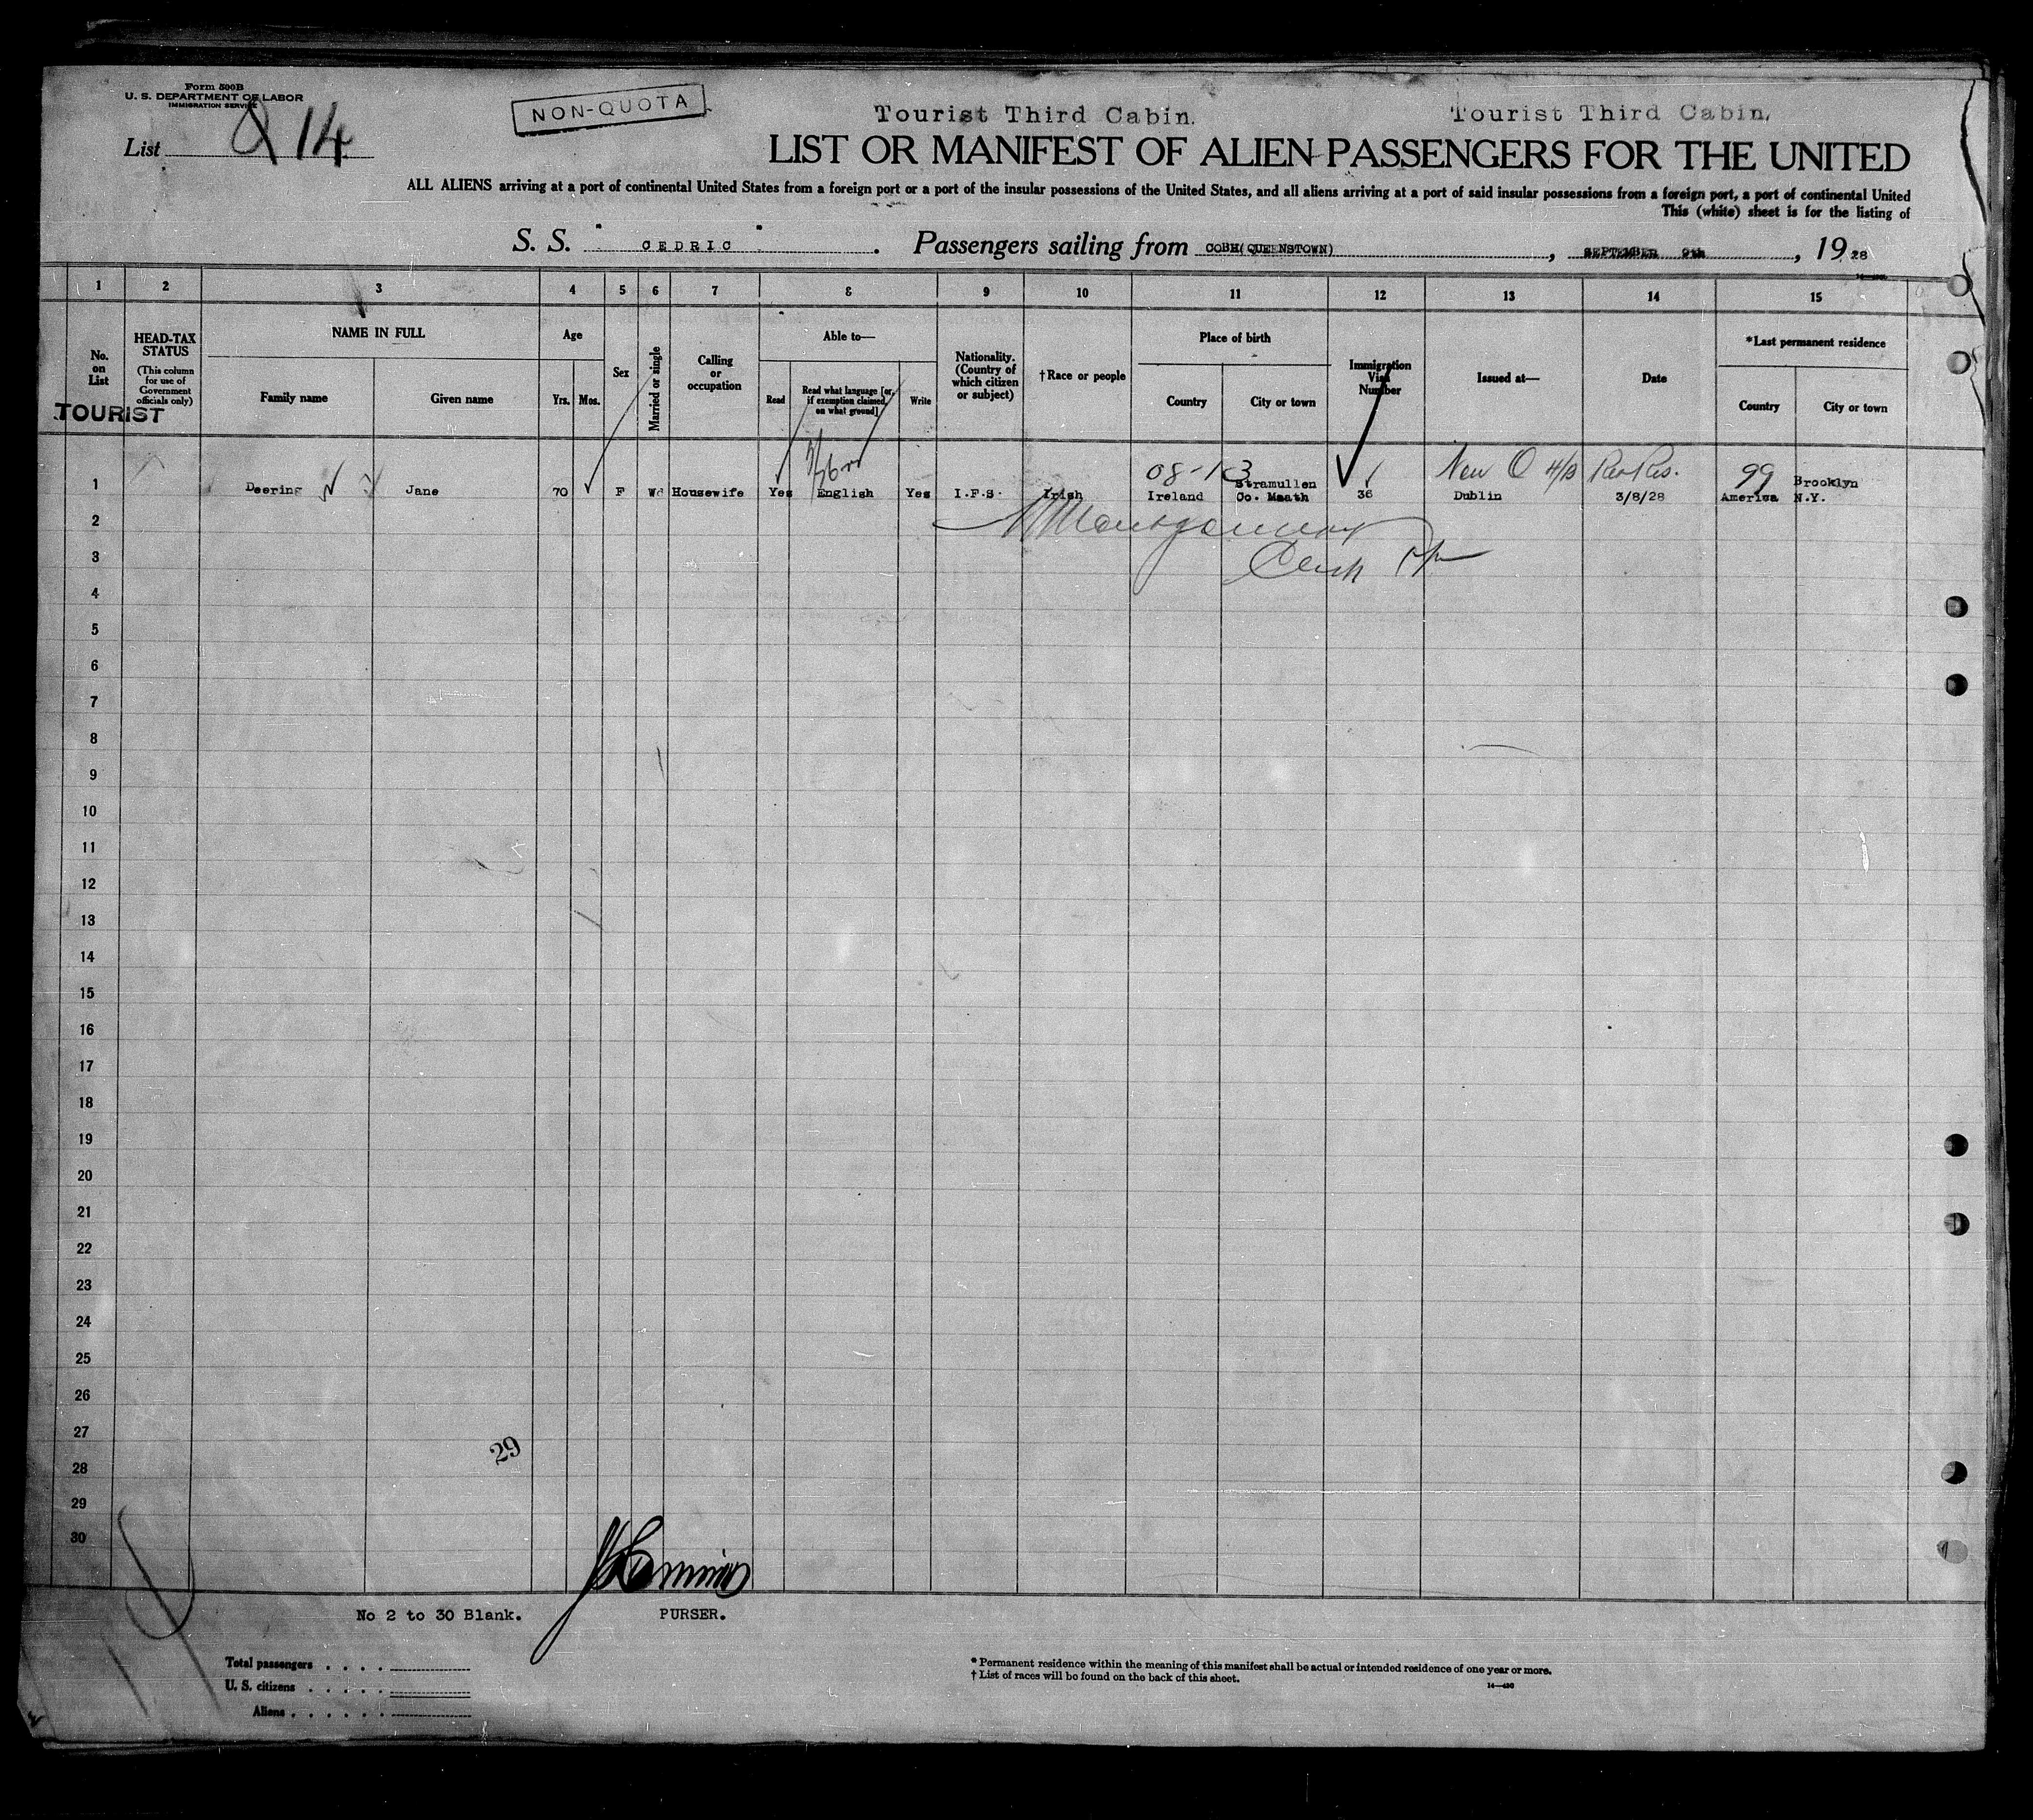 Form 500B
U. S. DEPARTMENT OF LABOR
IMMIGRATION SERVICE
List 14
NON-QUOTA
Tourist Third Cabin. Tourist Third Cabin.
LIST OR MANIFEST OF ALIEN PASSENGERS FOR THE UNITED
ALL ALIENS arriving at a port of continental United States from a foreign port or a port of the insular possessions of the United States, and all aliens arriving at a port of said insular possessions from a foreign port, a port of continental United
This (white) sheet is for the listing of
S. S. " CEDRIC " . Passengers sailing from COBH(QUEENSTOWN) , SEPTEMBER 9th , 19 28
1 2 3 4 5 6 7 8 9 10 11 12 13 14 15
No. on List
HEAD-TAX STATUS
(This column for use of Government officials only)
NAME IN FULL
Family name
Given name
Age
Yrs. Mos.
Sex
Married or single
Calling or occupation
Able to—
Read
Read what language [or, if exemption claimed, on what ground]
Write
Nationality. (Country of which citizen or subject)
†Race or people
Place of birth
Country
City or town
Immigration Visa Number
Issued at—
Date
*Last permanent residence
Country
City or town
TOURIST
08-1 3 New 4/B 99
1 Deering Jane 70 F Wd Housewife Yes English Yes I.F.S. Irish Ireland Stramullen Co. Meath 36 Dublin 3/8/28 America Brooklyn N.Y.
2
Montgomery
3
Clerk
4
5
6
7
8
9
10
11
12
13
14
15
16
17
18
19
20
21
22
23
24
25
26
27
29
28
29
30
No 2 to 30 Blank.
PURSER.
Total passengers . . . .
U. S. citizens . . . . .
Aliens . . . . . .
* Permanent residence within the meaning of this manifest shall be actual or intended residence of one year or more.
† List of races will be found on the back of this sheet.
14—430